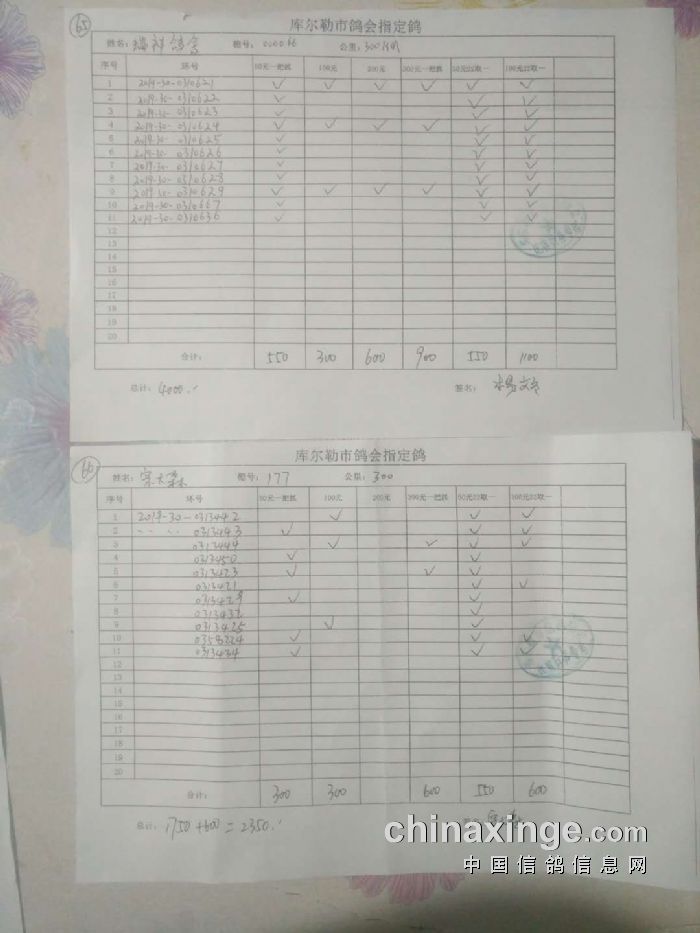 65
库尔勒市鸽会指定鸽
姓名: 瑞祥鸽舍 棚号: 000066 公里: 300
序号 环号 50元一把抓 100元 200元 300元一把抓 50元22取一 100元22取一
1 2019-30-0310621 ✓ ✓ ✓ ✓ ✓ ✓
2 2019-30-0310622 ✓ ✓ ✓
3 2019-30-0310623 ✓ ✓ ✓
4 2019-30-0310624 ✓ ✓ ✓ ✓ ✓ ✓
5 2019-30-0310625 ✓ ✓ ✓
6 2019-30-0310626 ✓ ✓ ✓
7 2019-30-0310627 ✓ ✓ ✓
8 2019-30-0310628 ✓ ✓ ✓
9 2019-30-0310629 ✓ ✓ ✓ ✓ ✓ ✓
10 2019-30-0310667 ✓ ✓ ✓
11 2019-30-0310636 ✓ ✓ ✓
12
13
14
15
16
17
18
19
20
合计: 550 300 600 900 550 1100
总计: 4000. 签名:
66
库尔勒市鸽会指定鸽
姓名: 棚号: 177 公里: 300
序号 环号 50元一把抓 100元 200元 300元一把抓 50元22取一 100元22取一
1 2019-30-0313442 ✓ ✓ ✓
2 0313443 ✓ ✓ ✓
3 0313449 ✓ ✓ ✓ ✓
4 0313450 ✓ ✓
5 0313423 ✓ ✓ ✓
6 0313421 ✓ ✓
7 ✓ ✓
8 0313432 ✓
9 0313425 ✓ ✓
10 0358224 ✓ ✓ ✓
11 0313434 ✓ ✓ ✓
12
13
14
15
16
17
18
19
20
合计: 300 300 600 550 600
总计: 1750+600=2350.
chinaxinge.com
中国信鸽信息网